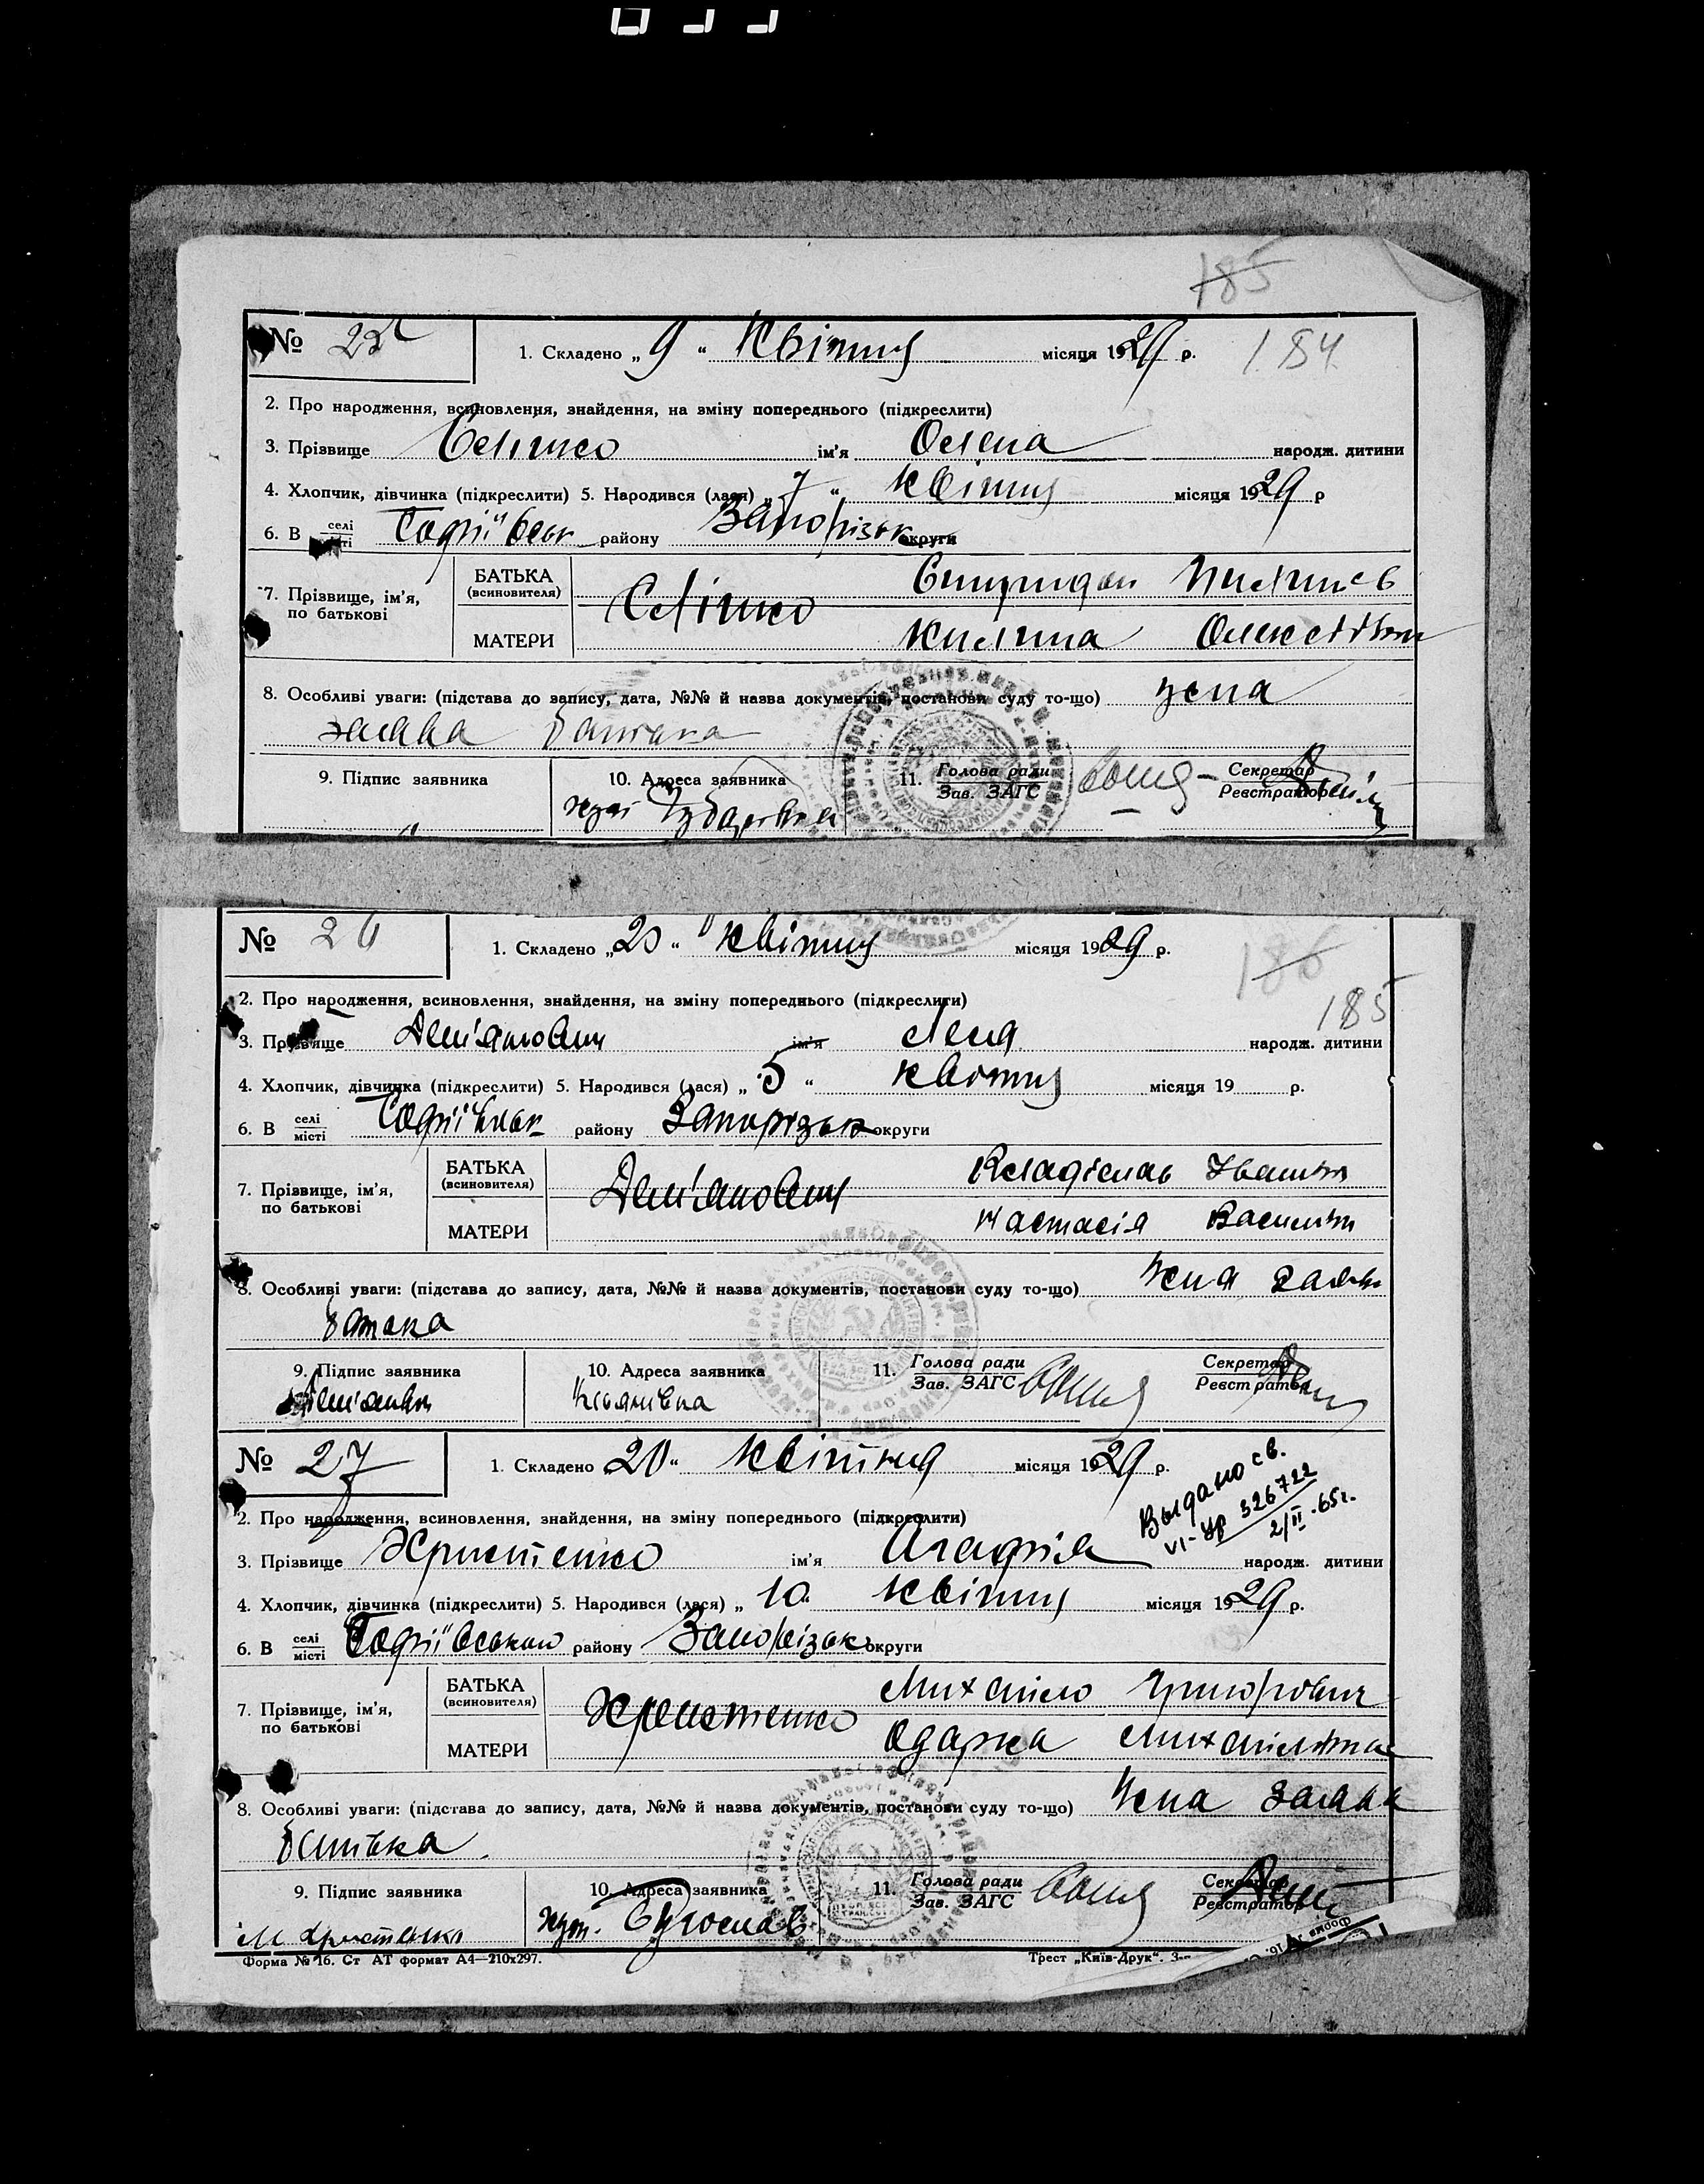 185
№ 22 1. Складено „ 9 “ Квітня місяця 1929 р. 184
2. Про народження, всиновлення, знайдення, на зміну попереднього (підкреслити)
3. Прізвище ім'я Олена народж. дитини
4. Хлопчик, дівчинка (підкреслити) 5. Народився (лася) „ 7 “ квітня місяця 1929 р
6. В селі місті Софіївськ району Запорізьк округи
7. Прізвище, ім'я, по батькові
БАТЬКА (всиновителя) Спиридон
МАТЕРИ Килина
8. Особливі уваги: (підстава до запису, дата, №№ й назва документів, постанови суду то-що) усна
заява батька
9. Підпис заявника 10. Адреса заявника 11. Голова ради Зав. ЗАГС Секретар Реєстратор
№ 26 1. Складено „ 20 “ квітня місяця 1929 р. 186
2. Про народження, всиновлення, знайдення, на зміну попереднього (підкреслити) 185
3. Прізвище Дем'янович ім'я Леня народж. дитини
4. Хлопчик, дівчинка (підкреслити) 5. Народився (лася) „ 5 “ квітня місяця 19 р.
6. В селі місті Софіївськ району Запорізьк округи
7. Прізвище, ім'я, по батькові Дем'янович
БАТЬКА (всиновителя) Владіслав Іванов
МАТЕРИ Настасія Васильов
8. Особливі уваги: (підстава до запису, дата, №№ й назва документів, постанови суду то-що) Усна заява
батька
9. Підпис заявника 10. Адреса заявника 11. Голова ради Зав. ЗАГС Секретар Реєстратор
№ 27 1. Складено 20 “ квітня місяця 1929 р.
Выдано св.
VI-УР 326722
2/II-65г.
2. Про народження, всиновлення, знайдення, на зміну попереднього (підкреслити)
3. Прізвище Христенко ім'я Агафія народж. дитини
4. Хлопчик, дівчинка (підкреслити) 5. Народився (лася) „ 10 “ квітня місяця 1929 р.
6. В селі місті Софіївського району Запорізьк округи
7. Прізвище, ім'я, по батькові Христенко
БАТЬКА (всиновителя) Михайло Григорович
МАТЕРИ Одарка Михайлівна
8. Особливі уваги: (підстава до запису, дата, №№ й назва документів, постанови суду то-що) Усна заява
батька
9. Підпис заявника 10. Адреса заявника 11. Голова ради Зав. ЗАГС Секретар Реєстратор
М Христенко хут.
Форма № 16. Ст АТ формат А4—210х297. Трест „Київ-Друк“.